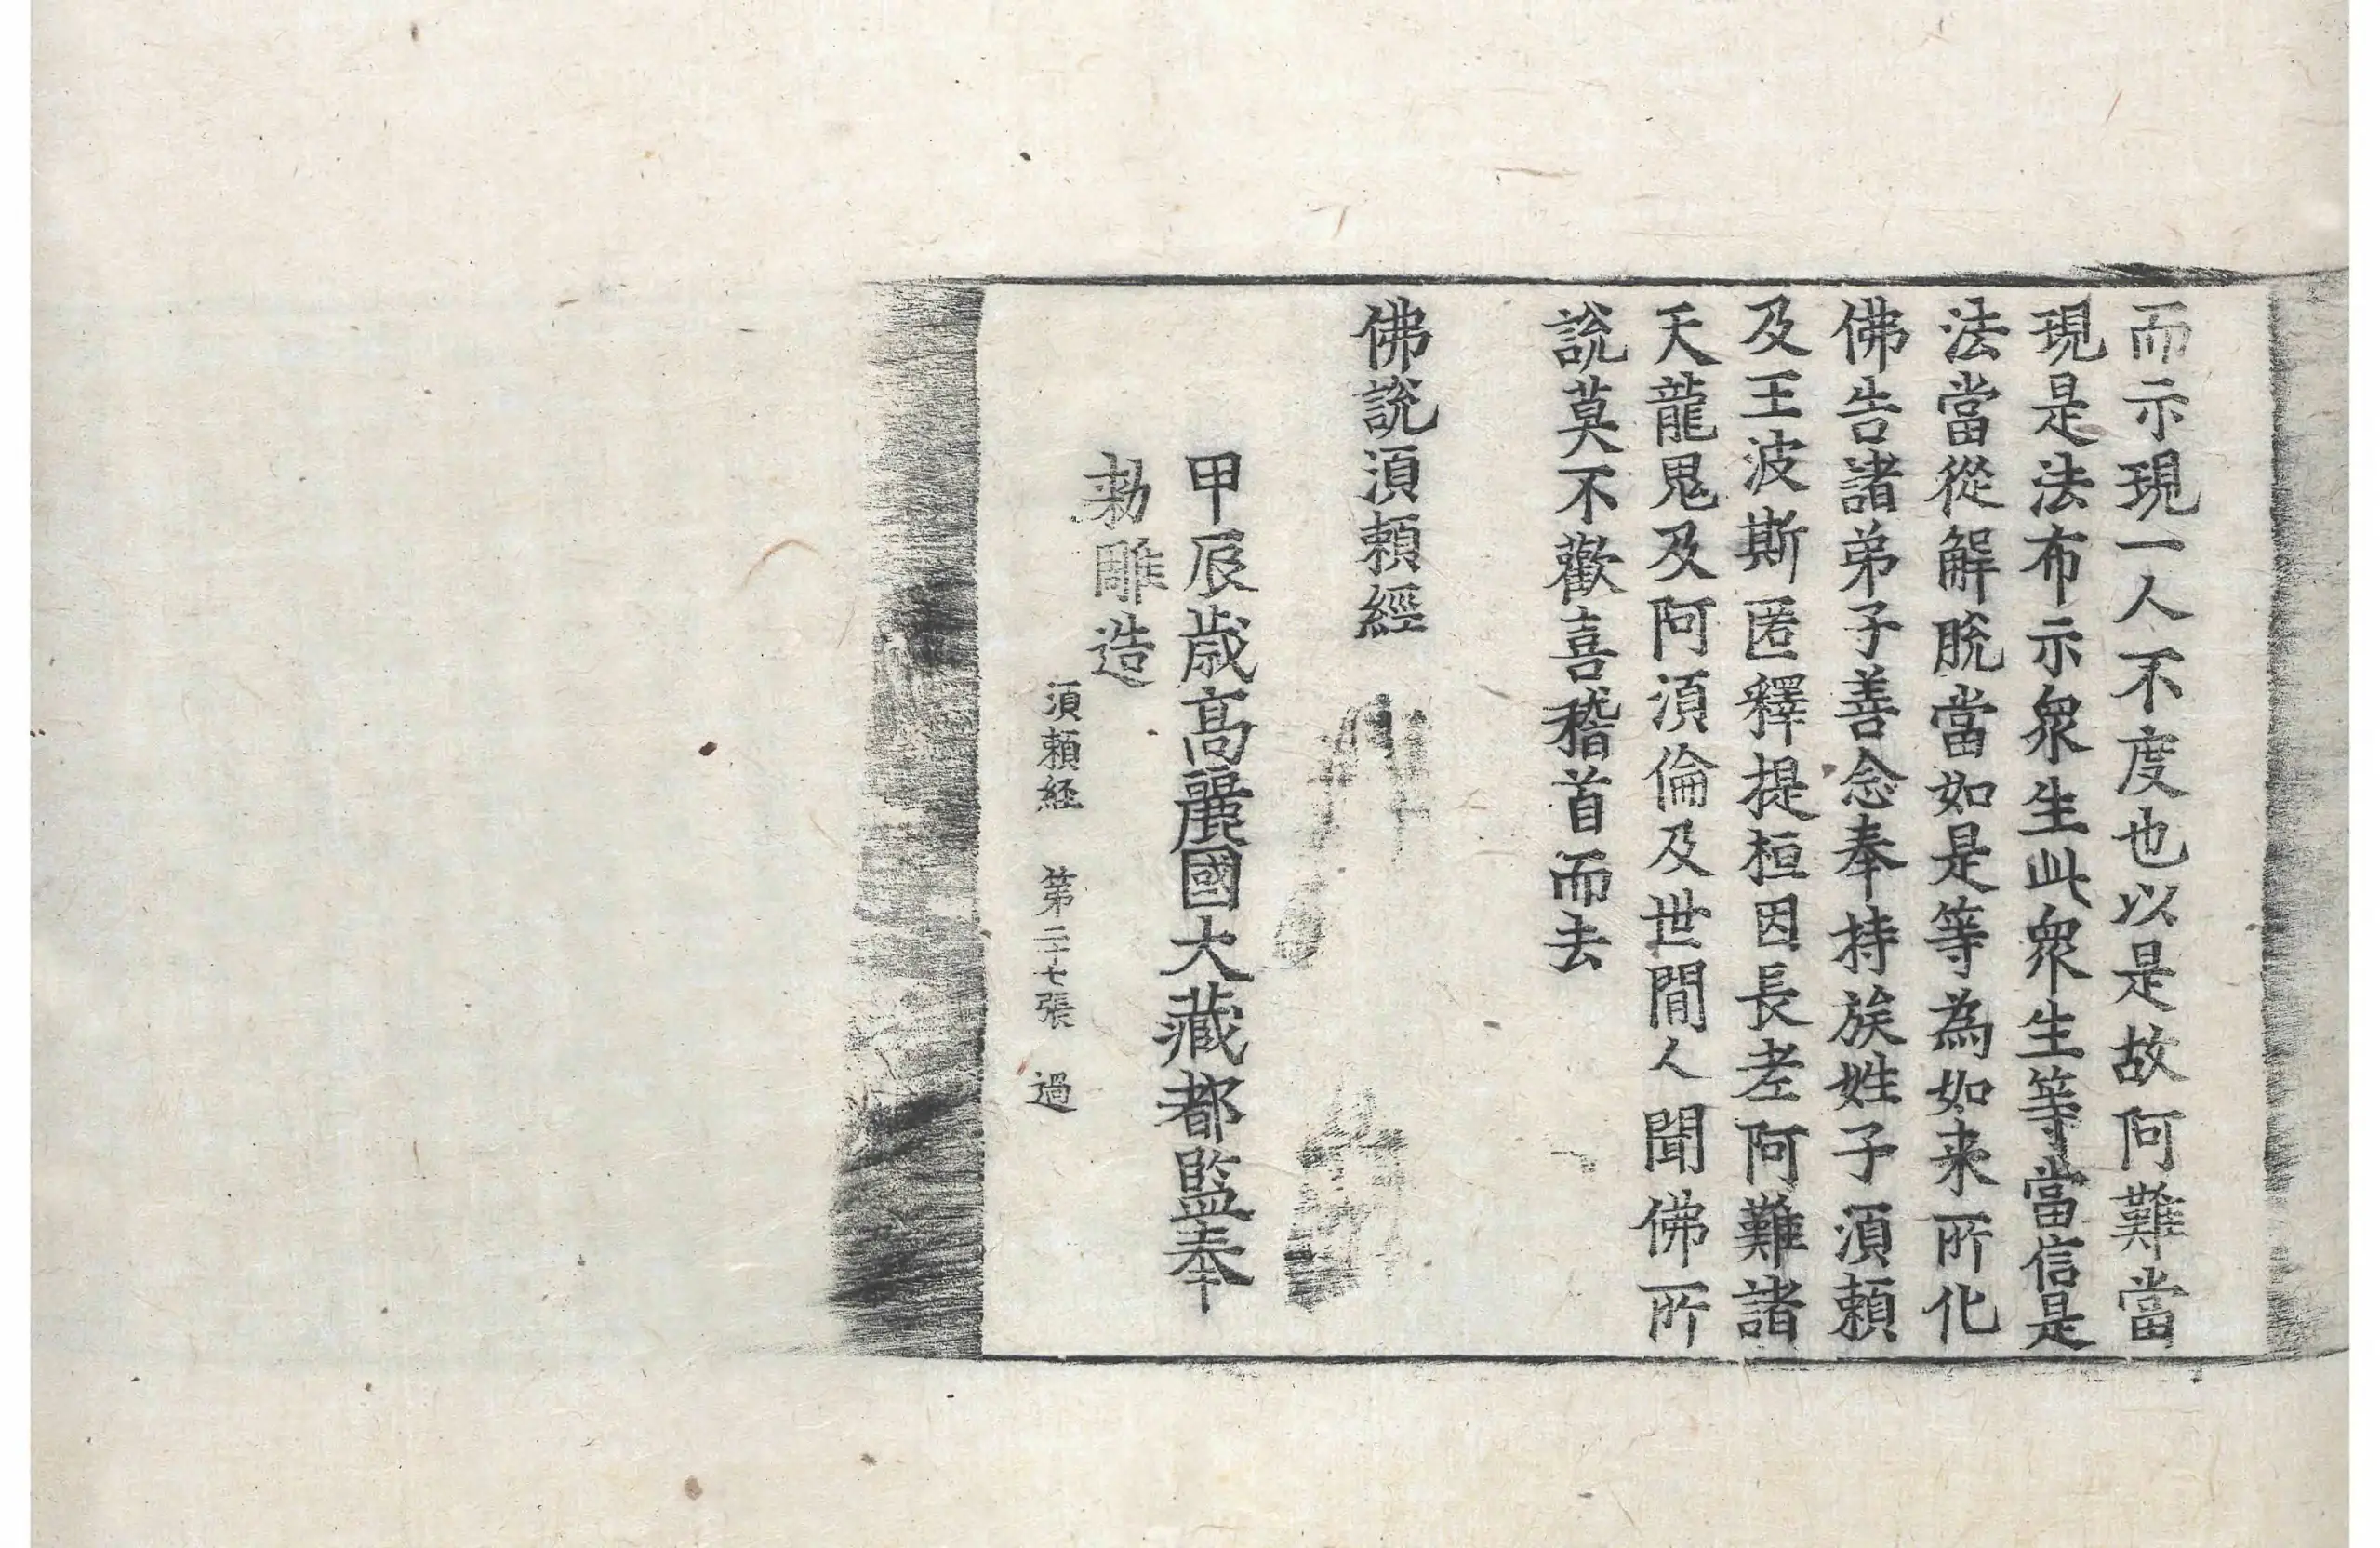 而示現一人不度也以是故阿難當
現是法布示衆生此衆生等當信是
法當從解脫當如是等為如来所化
佛告諸弟子善念奉持族姓子湏頼
及王波斯匿釋提桓因長者阿難諸
天龍鬼及阿湏倫及世閒人聞佛所
說莫不歡喜稽首而去
佛說湏頼經
甲辰歲高麗國大藏都監奉
勑雕造
湏頼経 第二十七張 過